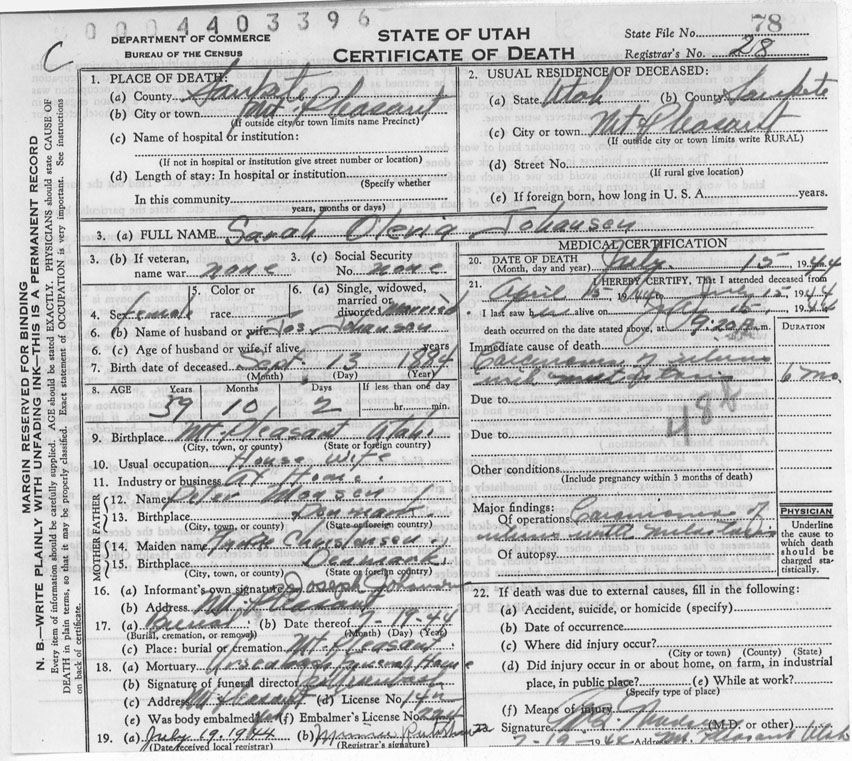 0004403396
DEPARTMENT OF COMMERCE
BUREAU OF THE CENSUS
STATE OF UTAH
CERTIFICATE OF DEATH
State File No. 78
Registrar's No. 28
C
MARGIN RESERVED FOR BINDING
N. B.—WRITE PLAINLY WITH UNFADING INK—THIS IS A PERMANENT RECORD
Every item of information should be carefully supplied. AGE should be stated EXACTLY. PHYSICIANS should state CAUSE OF
DEATH in plain terms, so that it may be properly classified. Exact statement of OCCUPATION is very important. See instructions
on back of certificate.
1. PLACE OF DEATH:
(a) County Sanpete
(b) City or town Mt Pleasant
(If outside city or town limits name Precinct)
(c) Name of hospital or institution:
(If not in hospital or institution give street number or location)
(d) Length of stay: In hospital or institution
(Specify whether
In this community
years, months or days)
2. USUAL RESIDENCE OF DECEASED:
(a) State Utah (b) County Sanpete
(c) City or town Mt Pleasant
(If outside city or town limits write RURAL)
(d) Street No.
(If rural give location)
(e) If foreign born, how long in U. S. A. years.
3. (a) FULL NAME Sarah Olevia Johansen
3. (b) If veteran, name war none
3. (c) Social Security No. none
4. Sex Female
5. Color or race
6. (a) Single, widowed, married or divorced Married
6. (b) Name of husband or wife Jos Johansen
6. (c) Age of husband or wife if alive years
7. Birth date of deceased Sept. 13 1884
(Month) (Day) (Year)
8. AGE Years Months Days If less than one day
59 10 2 hr. min.
9. Birthplace Mt Pleasant Utah
(City, town, or county) (State or foreign country)
10. Usual occupation House wife
11. Industry or business At Home
FATHER
12. Name Peter Mogsen
13. Birthplace Denmark
(City, town, or county) (State or foreign country)
MOTHER
14. Maiden name Christensen
15. Birthplace Denmark
(City, town, or county) (State or foreign country)
16. (a) Informant's own signature Joseph Johansen
(b) Address Mt Pleasant
17. (a) Burial (b) Date thereof 7-19-44
(Burial, cremation, or removal) (Month) (Day) (Year)
(c) Place: burial or cremation Mt Pleasant
18. (a) Mortuary Funeral Home
(b) Signature of funeral director
(c) Address Mt Pleasant (d) License No.
(e) Was body embalmed (f) Embalmer's License No.
19. (a) July 19, 1944 (b) Minnie
(Date received local registrar) (Registrar's signature)
MEDICAL CERTIFICATION
20. DATE OF DEATH July 15 1944
(Month, day and year)
21. I HEREBY CERTIFY, That I attended deceased from
April 15, 1944 to July 15, 1944
I last saw her alive on July 15, 1944
death occurred on the date stated above, at 9:20 m.
DURATION
Immediate cause of death
Carcinoma of uterus
with 6 mo.
Due to
48b
Due to
Other conditions
(Include pregnancy within 3 months of death)
Major findings:
Of operations Carcinoma of
uterus with
Of autopsy
PHYSICIAN
Underline
the cause to
which death
should be
charged sta-
tistically.
22. If death was due to external causes, fill in the following:
(a) Accident, suicide, or homicide (specify)
(b) Date of occurrence
(c) Where did injury occur?
(City or town) (County) (State)
(d) Did injury occur in or about home, on farm, in industrial
place, in public place? (e) While at work?
(Specify type of place)
(f) Means of injury
Signature (M.D. or other)
7-19-1944 Address Mt. Pleasant Utah